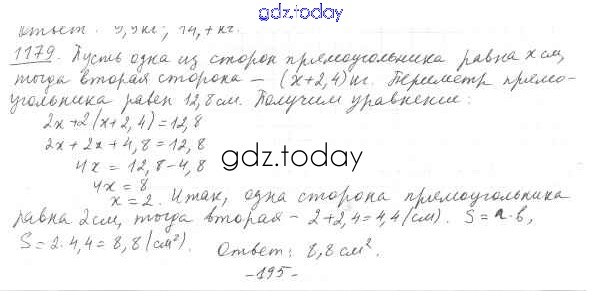 gdz.today
Ответ: 9,9кг; 14,7 кг.
1179. Пусть одна из сторон прямоугольника равна x см,
тогда вторая сторона – (x+2,4) см. Периметр прямо-
угольника равен 12,8 см. Получим уравнение:
2x+2(x+2,4)=12,8
2x+2x+4,8=12,8
4x = 12,8-4,8
gdz.today
4x = 8
x = 2. Итак, одна сторона прямоугольника
равна 2см, тогда вторая – 2+2,4=4,4(см). S = a·b,
S=2·4,4=8,8(см²). Ответ: 8,8 см².
-195-